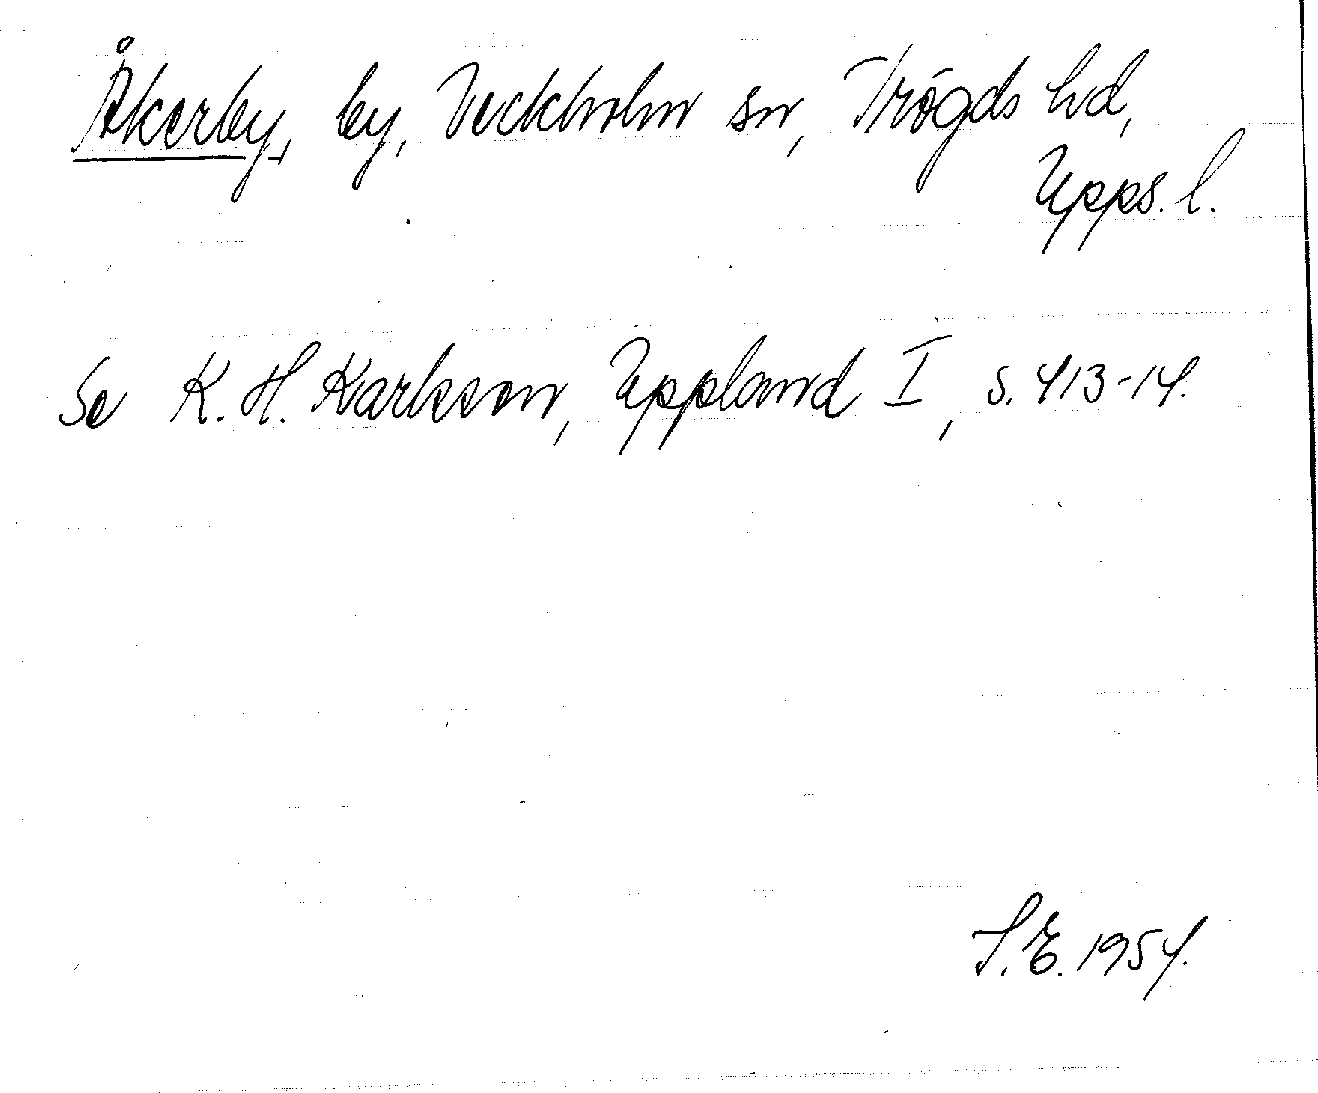 Åkerby, by, Veckholm sn, Trögds hd,
Upps. l.
Se K. H. Karlsson, Uppland I, s. 413-14.
S.E. 1954.